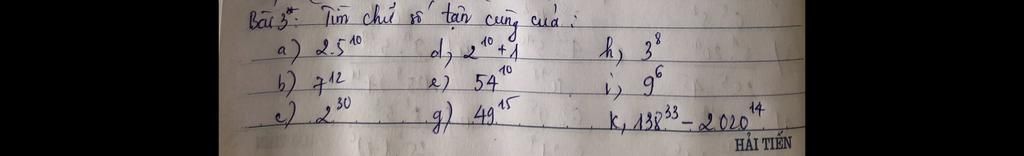 Bài 3*: Tìm chữ số tận cùng của:
a) 2.5¹⁰ d, 2¹⁰+1 h, 3⁸
b) 7¹² e) 54¹⁰ i, 9⁶
c) 2³⁰ g) 49¹⁵ k, 138³³ - 2020¹⁴
HẢI TIẾN